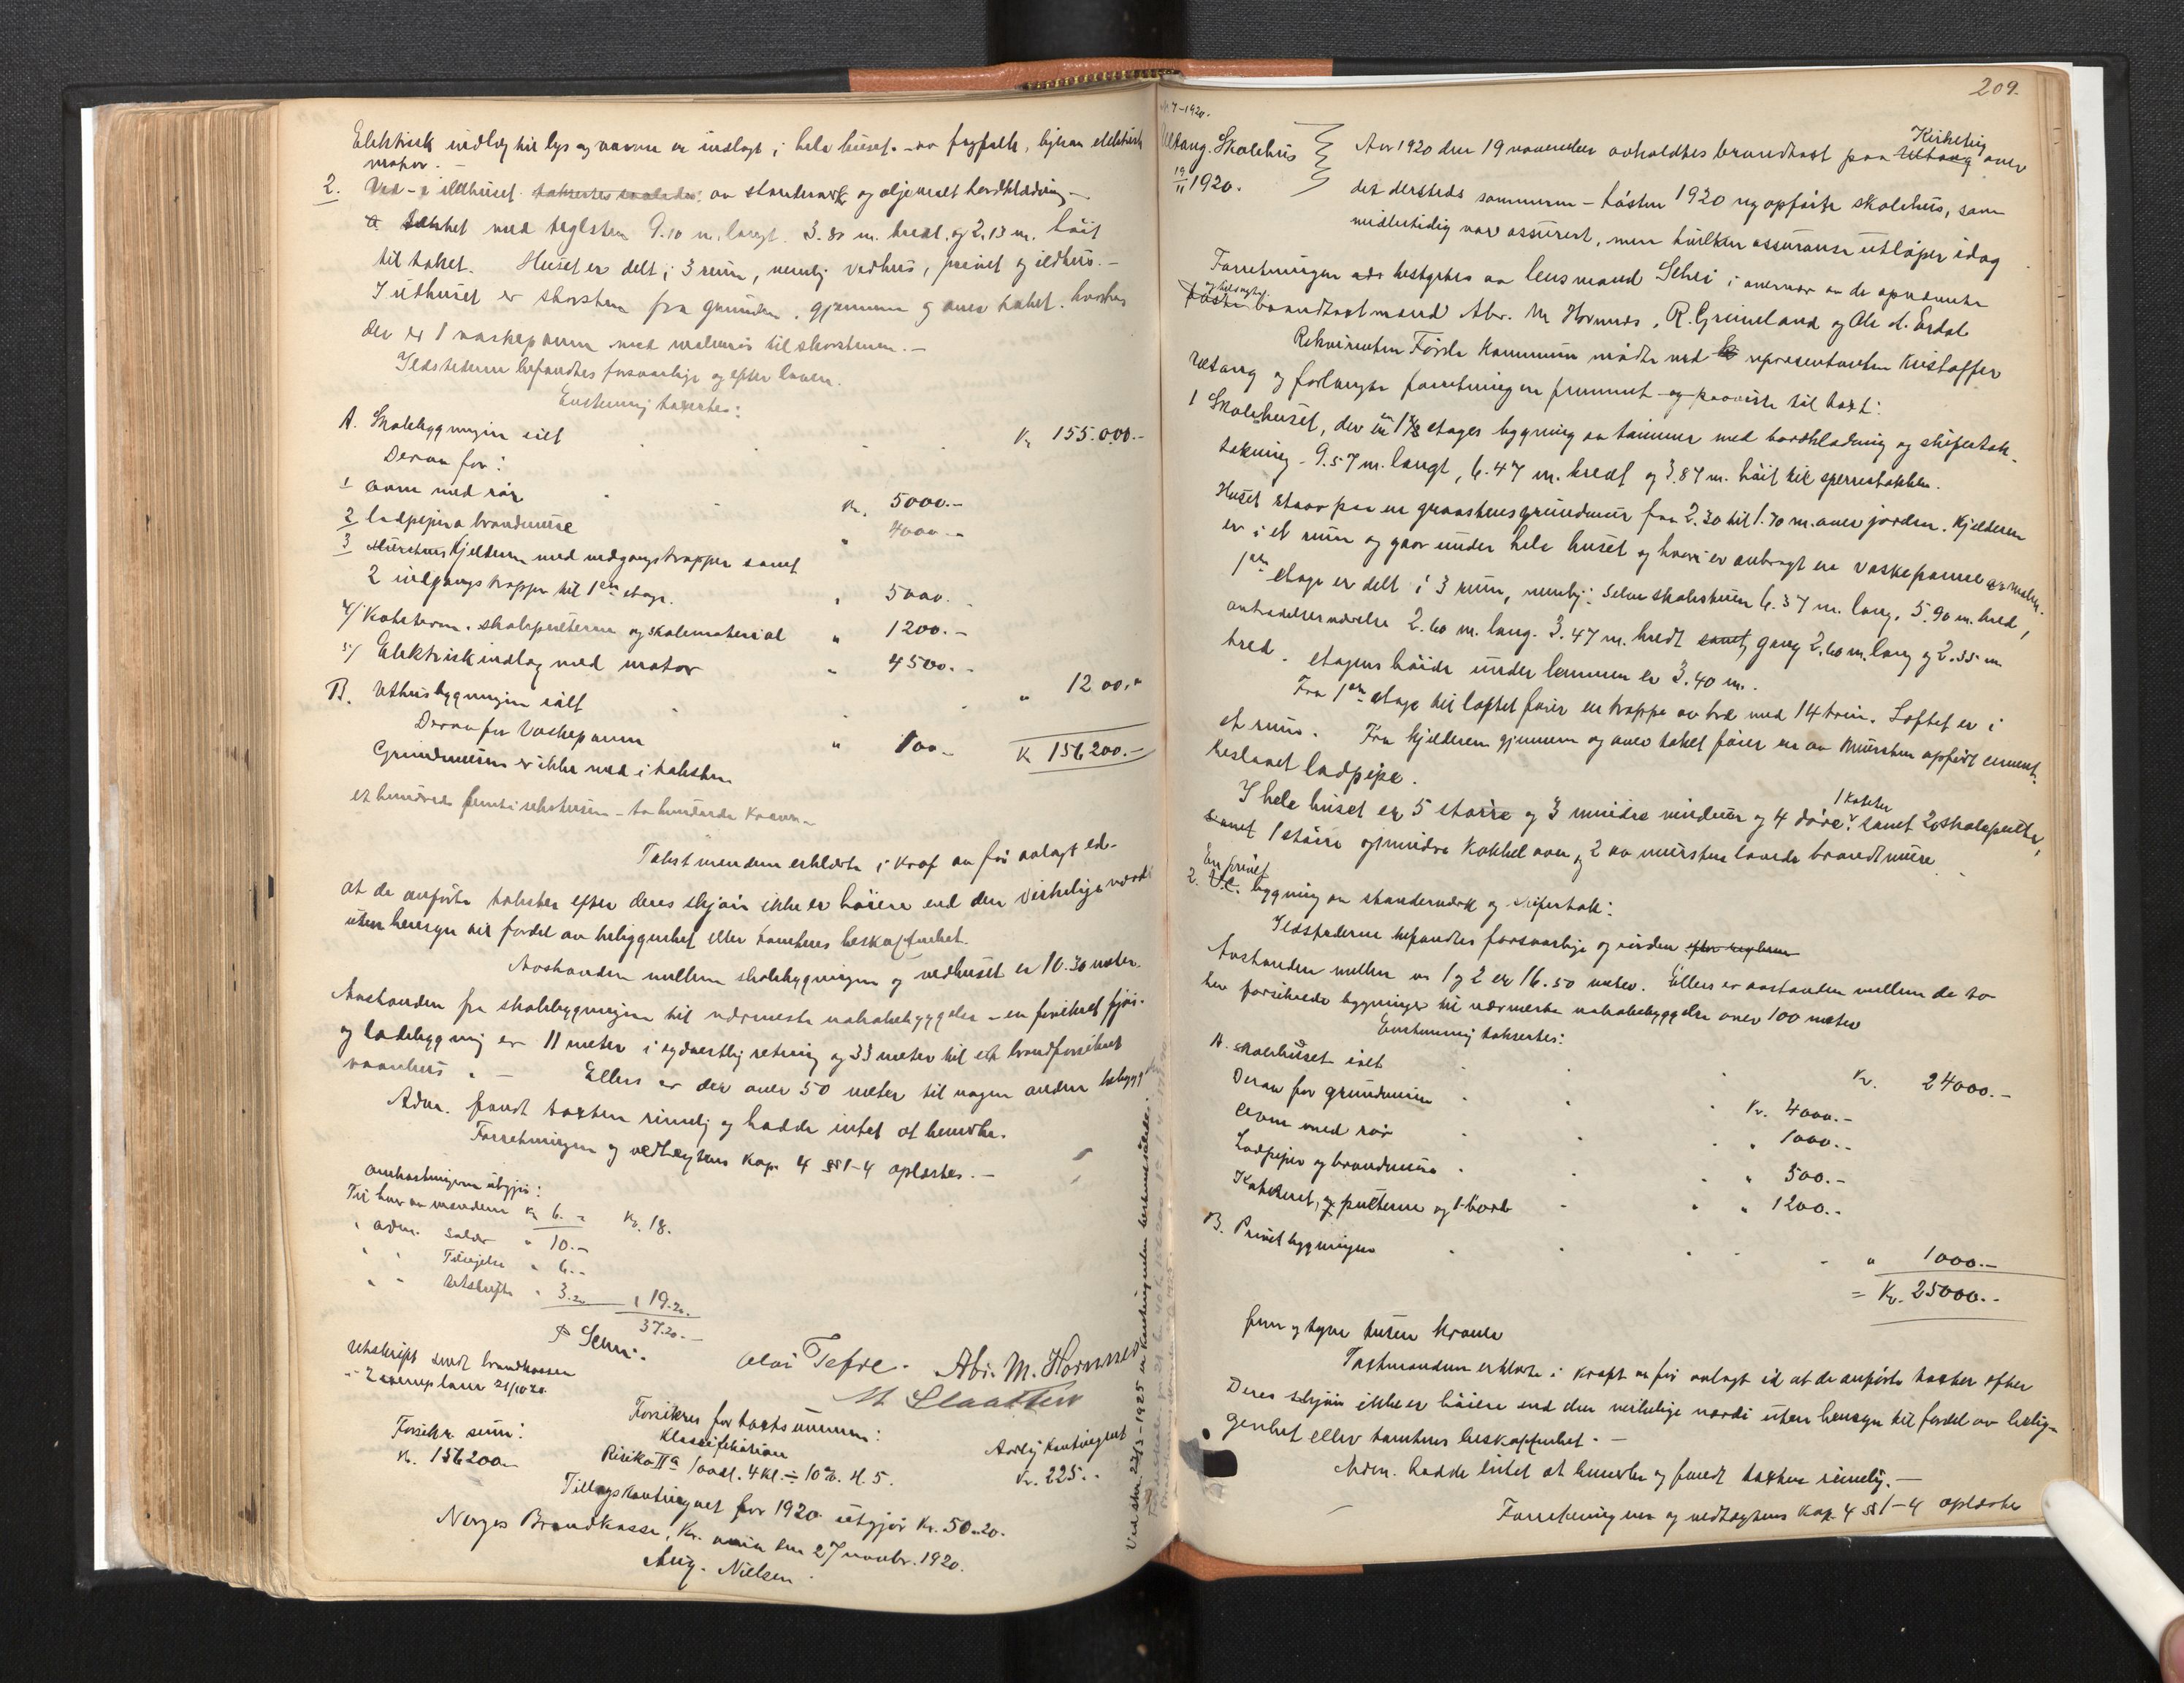 Elektrisk indlæg til lys og varme er indlagt i hele huset. av fagfolk, likesaa elektrisk
motor. -
2. Ved- & ildhuset taksertes saaledes: av standerverk og oljemalt bordklædning -
& tækket med teglsten 9.10 m. langt. 3.80 m. bredt. og 2.13 m. høit
til taket. Huset er delt i 3 rum, nemlig vedhus, privet og ildhus. -
I ildhuset er skorsten fra grunden, gjennem og over taket. hvorhos
der er 1 vaskepanne med murhus til skorstenen. -
Ildstederne befandtes forsvarlige og efter loven.
Enstemmig taxertes:
A. Skolebygningen ialt Kr 155.000.-
Derav for:
1 ovne med rør Kr. 5000.-
2 ladpiper & brandmure " 4000.-
3 Kjelderen med nedgangstrapper samt
2 indgangstrapper til 1ste etage. " 5000.-
4/ Kateterne. skolepulterne og skolemateriel " 1200.-
5/ Elektrisk indlæg med motor " 4500.-
B. Uthusbygningen ialt " 1200.-
Derav for Vaskepanne " 100.-
K 156200.-
Grundmuren er ikke med i taksten
et hundrede femti seks tusen - to hundrede kroner -
Takstmændene erklærte i kraft av før avlagt ed-
at de anførte takster efter deres skjøn ikke er høiere end den virkelige værdi
uten hensyn til fordel av beliggenhet eller tomtenes beskaffenhet.
Avstanden mellem skolebygningen og vedhuset er 10.30 meter.
Avstanden fra skolebygningen til nærmeste nabobebyggelse - en forsikret fjøs-
og ladebygning er 11 meter i sydvestlig retning og 33 meter til et brandforsikret
vaanhus. - Ellers er der over 50 meter til nogen anden bebygg
Adm. fandt taxten rimelig og hadde intet at bemerke.
Forretningen og vedtægtens kap. 4 §§ 1-4 oplæstes. -
Omkostningerne utgjør:
Til hver av mændene Kr 6.- Kr. 18.
" adm. salær " 10.-
" " Tilsigelse " 6.-
" " Utskrifter " 3.20 " 19.20.
37.20.-
P Schei.
Olai Tefre. Abr. M. Hornnes
M Slaatten
Utskrift sendt brandkassen
- 2 exemplarer 21/10 20.
Forsikr sum:
Kr. 156200.-
Forsikres for taxtsummen:
Klassifikation
Risiko IIa landt. 4 kl. ÷ 10%. H. 5.
Aarlig Kontingent
Kr. 225.-
Tillægskontingent for 1920 utgjør Kr. 50.20.
Norges Brandkasse, Kr.ania den 27 novbr. 1920.
Aug. Nielsen.
Ved skr. 27/3-1925 er kontingenten bestemt saaledes:
209.
7-1920.
Utvang. Skolehus
19/11 1920.
Aar 1920 den 19 november avholdtes brandtaxt paa Utvang Kirkeleg over
det dersteds sommeren - høsten 1920 nyopførte skolehus, som
midlertidig var assurert, men hvilken assuranse utløper idag
Forretningen ads bestyrtes av lensmand Schei i overvær av de opnævnte
og tilsagte brandtaxtmænd Abr. M Hornnes, R. Grimeland og Ole A. Erdal
Rekvirenten Førde Kommune møtte ved representanten Kristoffer
Utvang og forlangte forretningen fremmet - og paaviste til taxt:
1 Skolehuset, der er en 1 1/2 etages bygning av tømmer med bordklædning og skifertak-
tækning - 9.57 m. langt, 6.47 m. bredt og 3.87 m. høit til sperrestokken.
Huset staar paa en graastensgrundmur fra 2.30 til 1.70 m. over jorden. Kjelderen
er i et rum og gaar under hele huset og hvori er anbragt en vaskepanne
1ste etage er delt i 3 rum, nemlig: Selve skolestuen 6.37 m. lang, 5.90 m. bred,
antrædelsesværelse 2.60 m. lang. 3.47 m. bredt samt gang 2.60 m. lang og 2.35 m
bred. etagens høide under lemmen er 3.40 m.
Fra 1ste etage til loftet fører en trappe av træ med 14 trin. Loftet er i
et rum. Fra kjelderen gjennem og over taket fører en av mursten opført cement-
beslaaet ladpipe.
I hele huset er 5 større og 3 mindre vinduer og 4 døre. 1 kateter samt 20 skolepulter,
samt 1 større og mindre kakkelovn og 2 av mursten lavede brandtmure
2. En privetbygning av standerverk og skifertak:
Ildstederne befandtes forsvarlige og inden efter reglerne
Avstanden mellem nr 1 og 2 er 16.50 meter. Ellers er avstanden mellem de to
her forsikrede bygninger til nærmeste nabobebyggelse over 100 meter
Enstemmig taksertes:
A. skolehuset ialt Kr. 24000.-
Derav for grundmuren Kr. 4000.-
Ovne med rør " 1000.-
Ladpiper og brandmure " 500.-
Kateteret, pulterne og 1 bord " 1200.-
B. Privetbygningen " 1000.-
= Kr. 25000.-
fem og tyve tusen kroner
Taxtmændene erklærte i kraft av før avlagt ed at de anførte taxter efter
Deres skjøn ikke er høiere end den virkelige værdi uten hensyn til fordel av belig-
genhet eller tomtenes beskaffenhet. -
Adm. hadde intet at bemerke og fandt taxten rimelig. -
Forretningen og vedtægtens kap. 4 §§ 1-4 oplæste